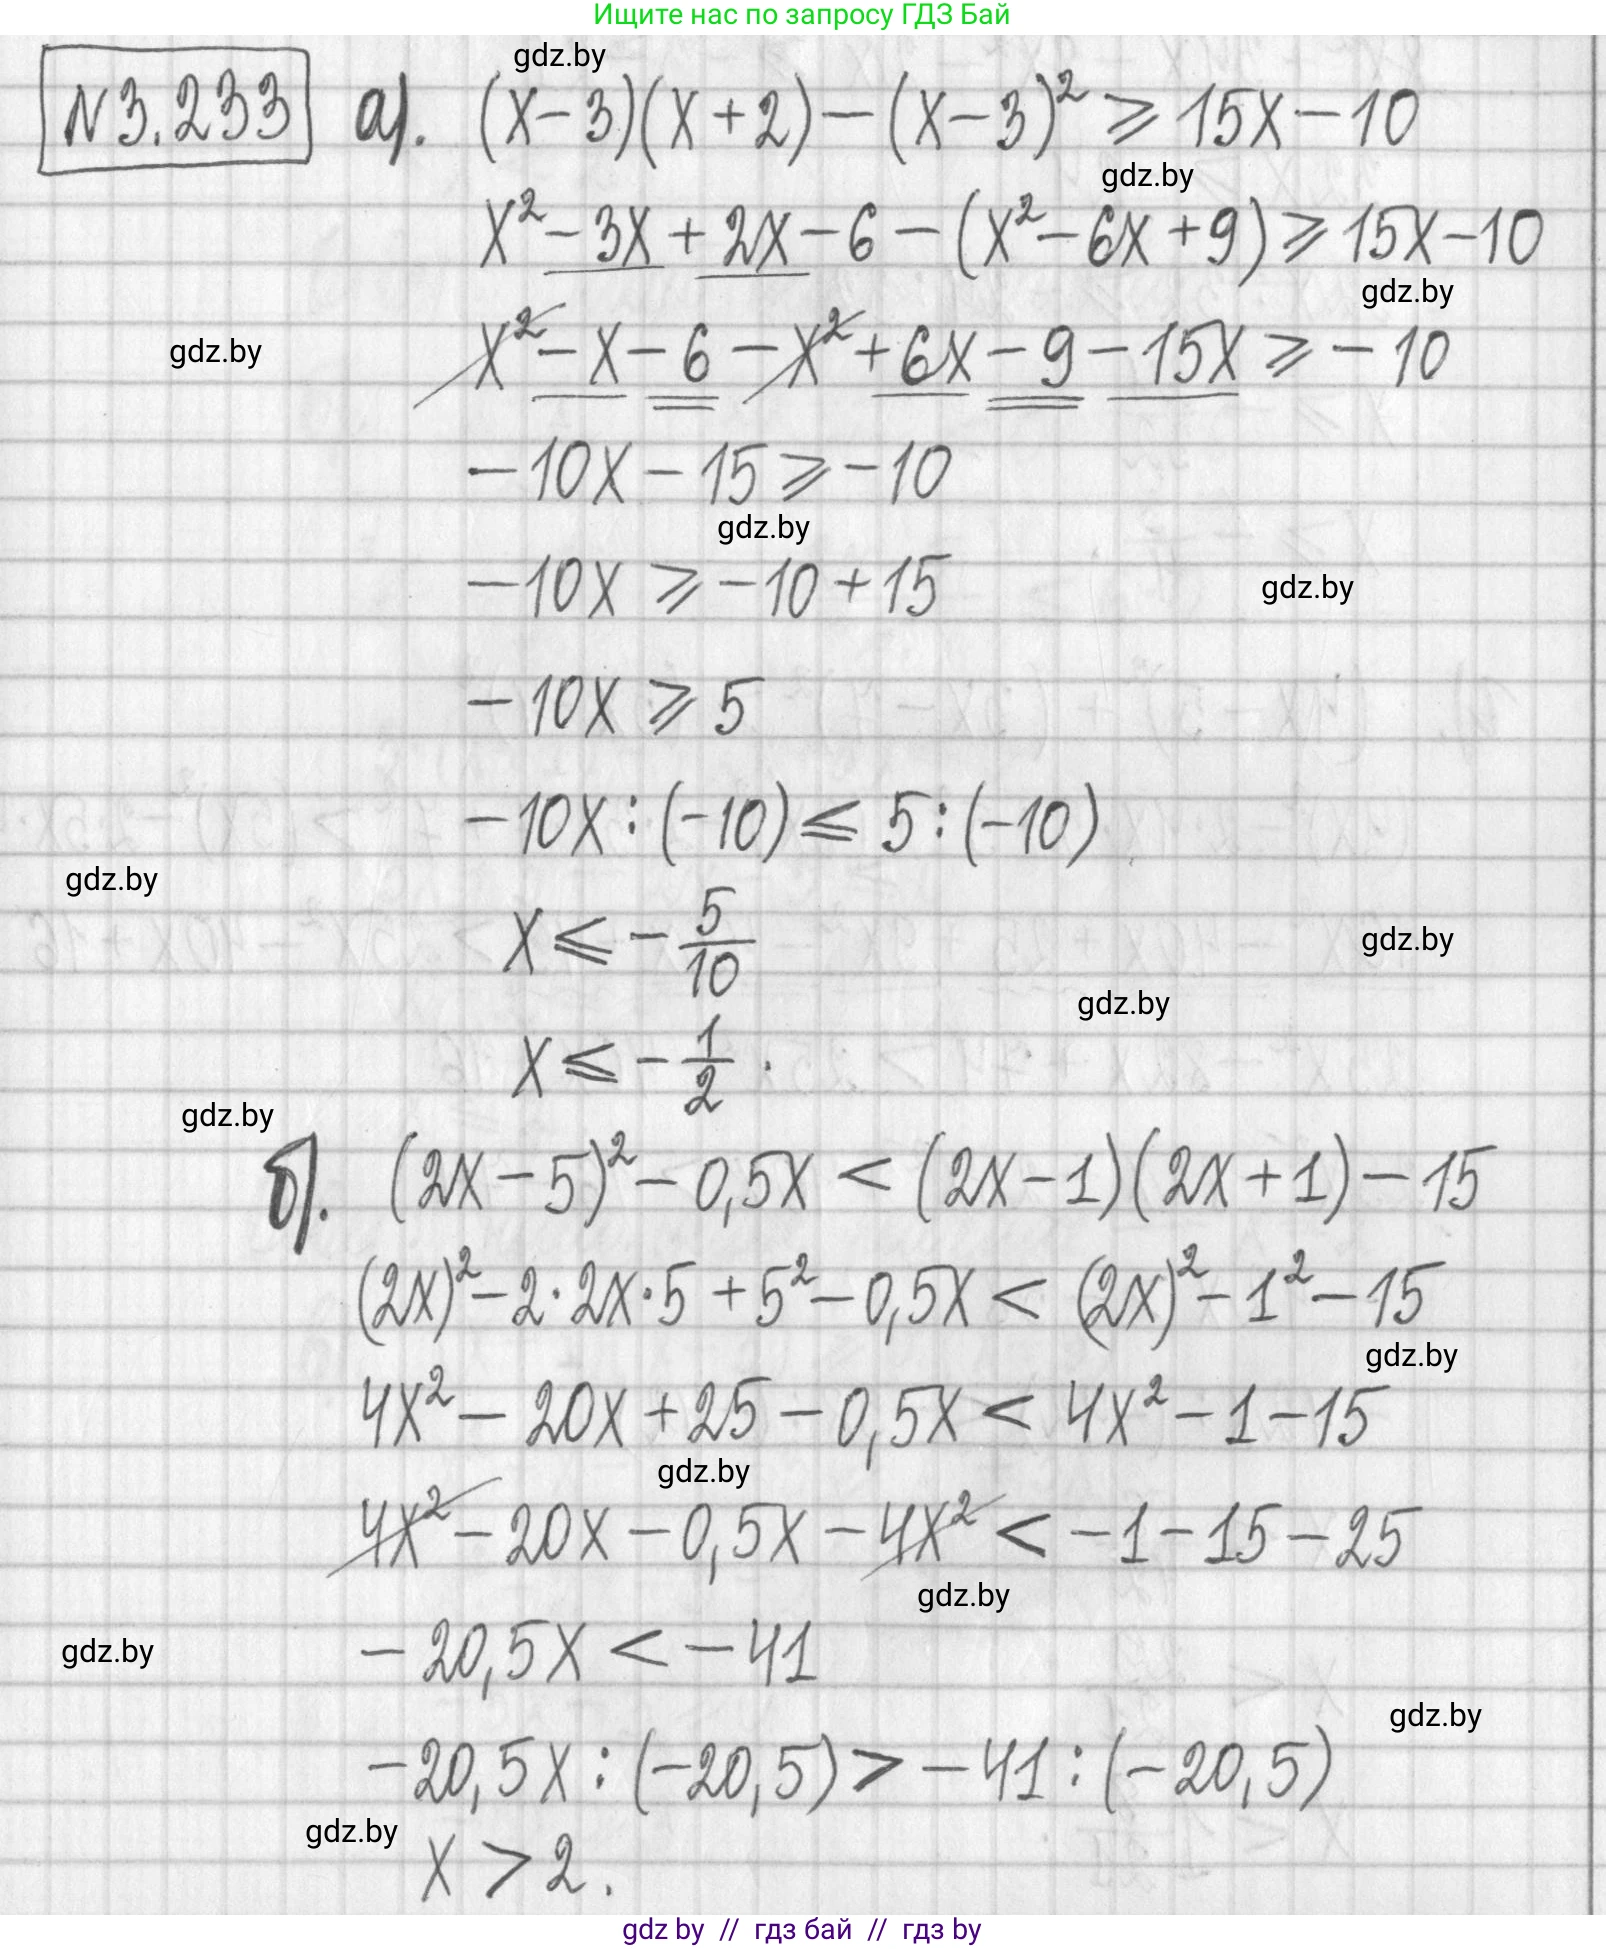 Ищите нас по запросу ГДЗ Бай
gdz.by
№3.233 а). (x-3)(x+2)-(x-3)² ⩾ 15x-10
gdz.by
x²-3x+2x-6-(x²-6x+9) ⩾ 15x-10
gdz.by
gdz.by
x²-x-6-x²+6x-9-15x ⩾ -10
-10x-15 ⩾ -10
gdz.by
-10x ⩾ -10+15
gdz.by
-10x ⩾ 5
-10x:(-10) ⩽ 5:(-10)
gdz.by
x ⩽ -5/10
gdz.by
gdz.by
x ⩽ -1/2.
gdz.by
б). (2x-5)²-0,5x < (2x-1)(2x+1)-15
(2x)²-2·2x·5+5²-0,5x < (2x)²-1²-15
gdz.by
4x²-20x+25-0,5x < 4x²-1-15
gdz.by
4x²-20x-0,5x-4x² < -1-15-25
gdz.by
-20,5x < -41
gdz.by
gdz.by
-20,5x:(-20,5) > -41:(-20,5)
gdz.by
x > 2.
gdz by // гдз бай // гдз by